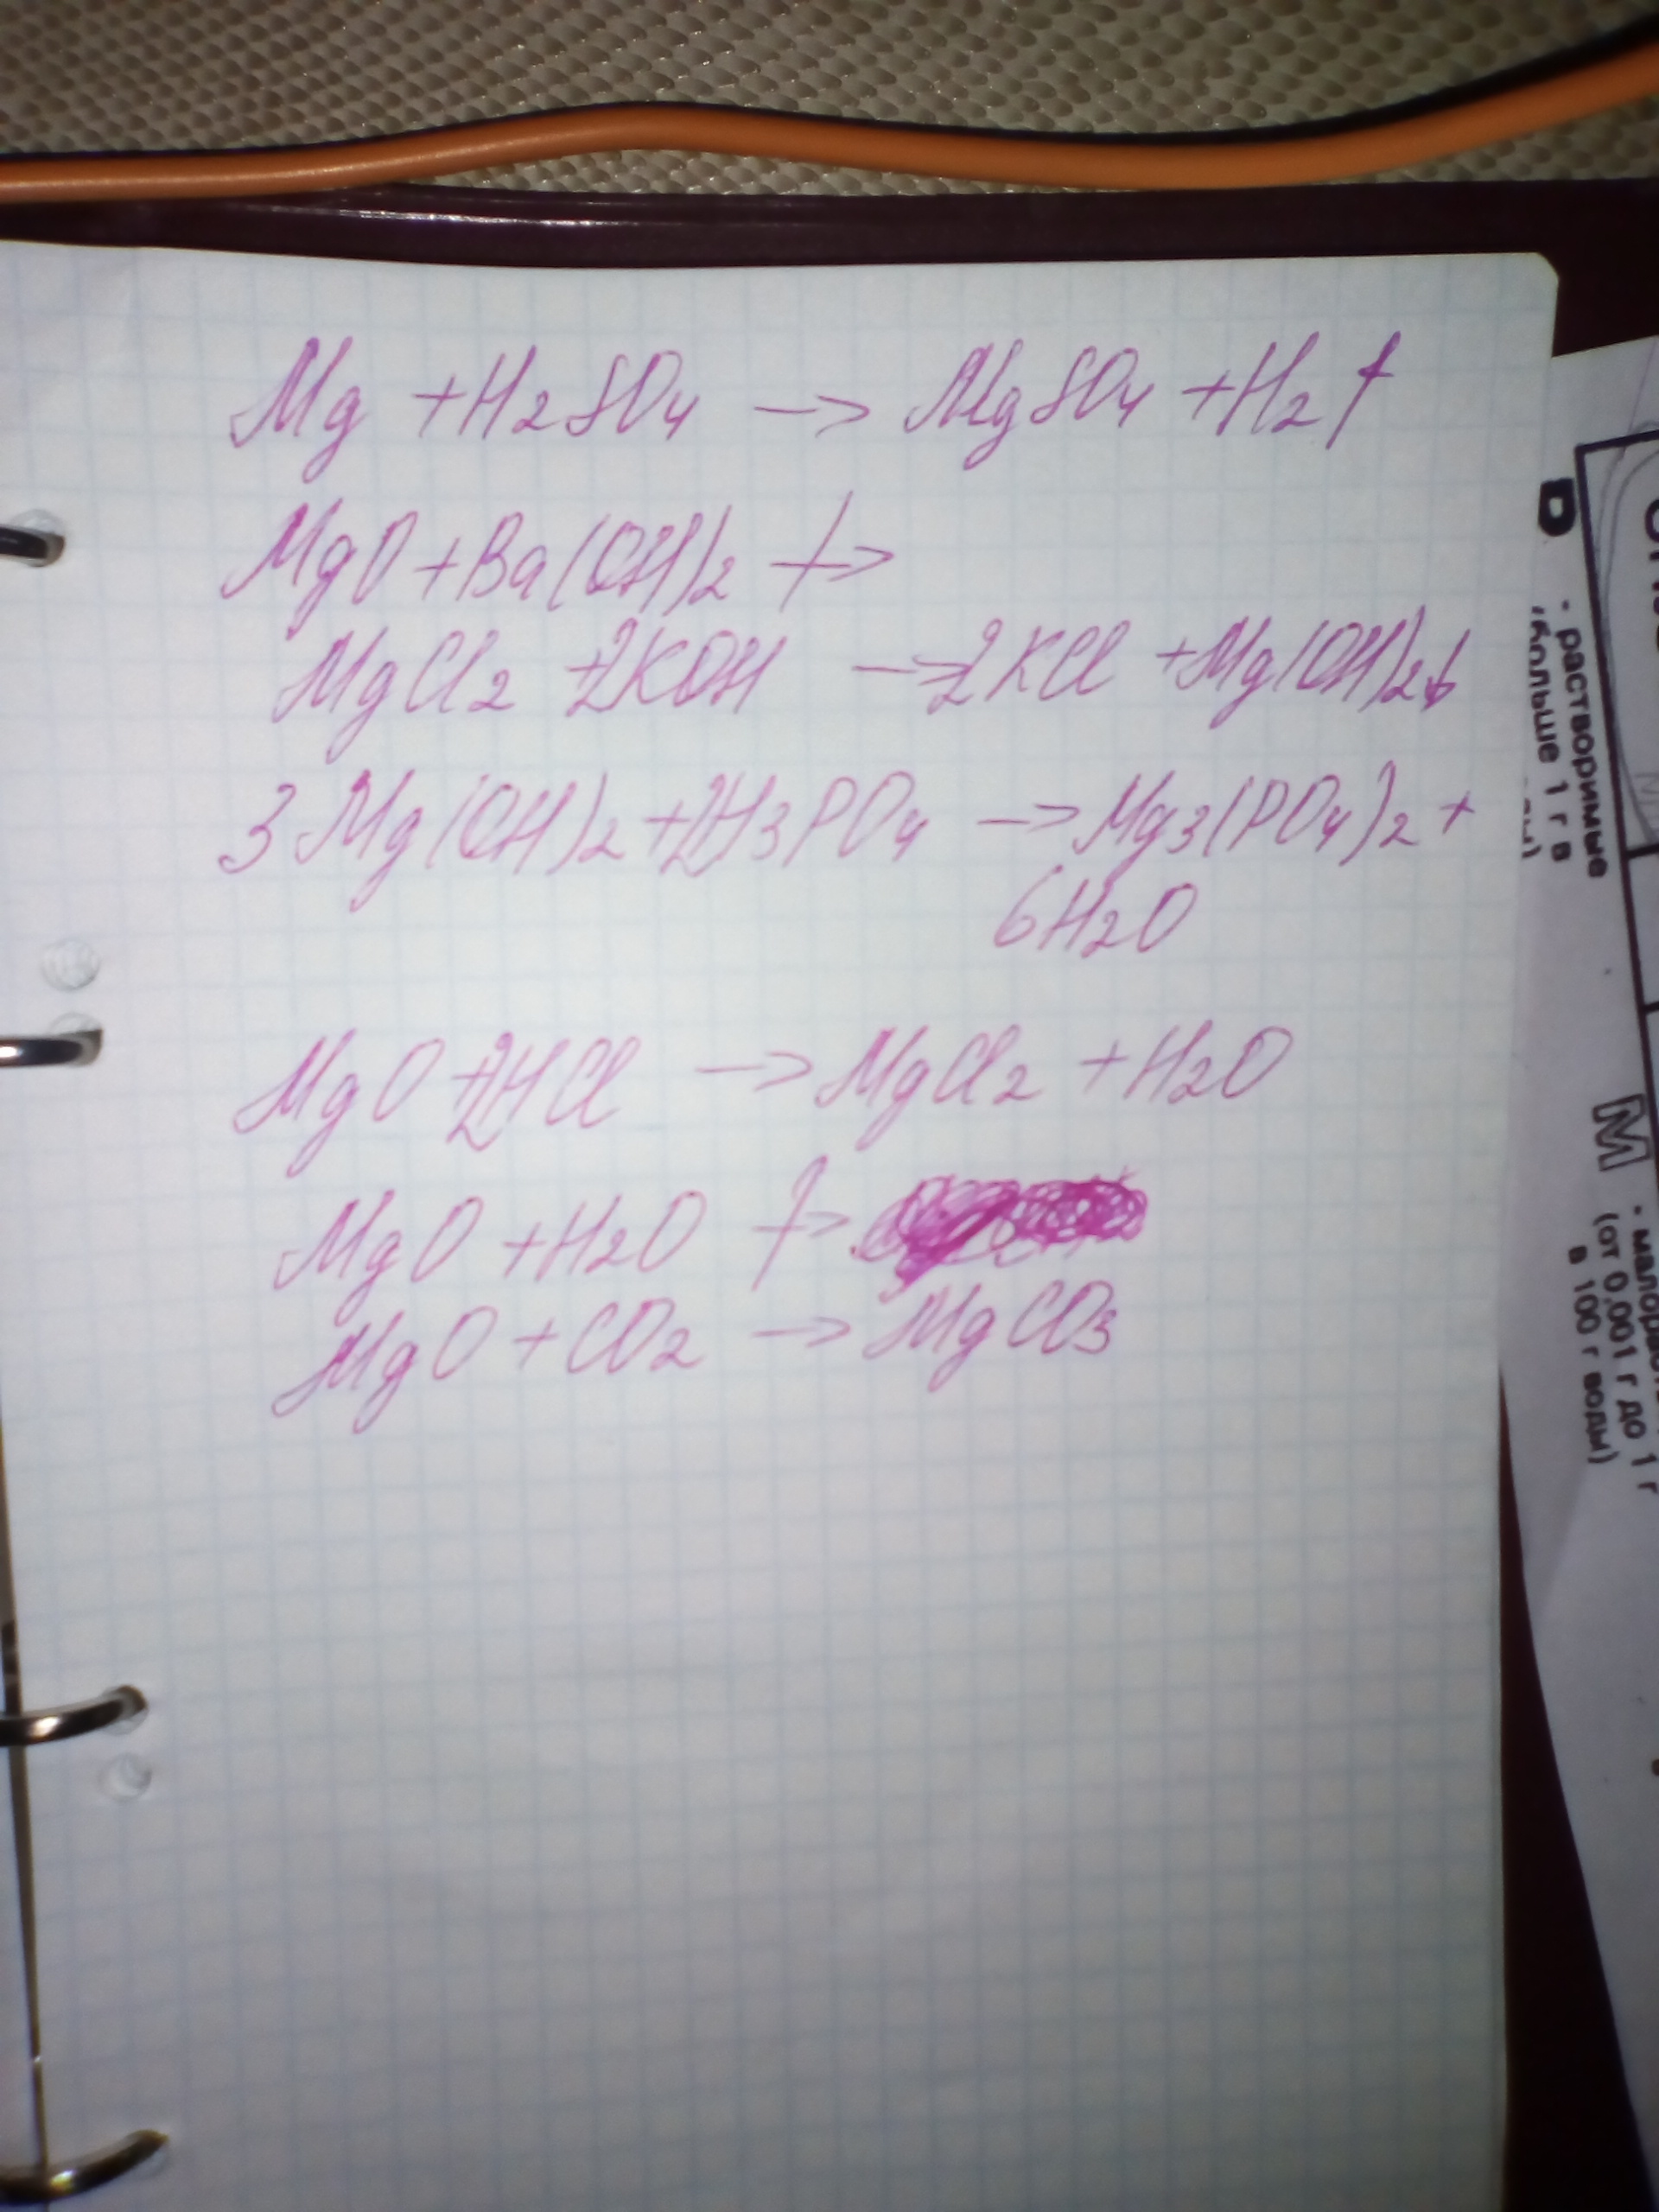 Mg + H2SO4 → MgSO4 + H2↑
MgO + Ba(OH)2 ↛
MgCl2 + 2KOH → 2KCl + Mg(OH)2↓
3Mg(OH)2 + 2H3PO4 → Mg3(PO4)2 +
6H2O
MgO + 2HCl → MgCl2 + H2O
MgO + H2O ↛
MgO + CO2 → MgCO3
- растворимые
1 г в
М
(от 0,001 г до 1 г
в 100 г воды)